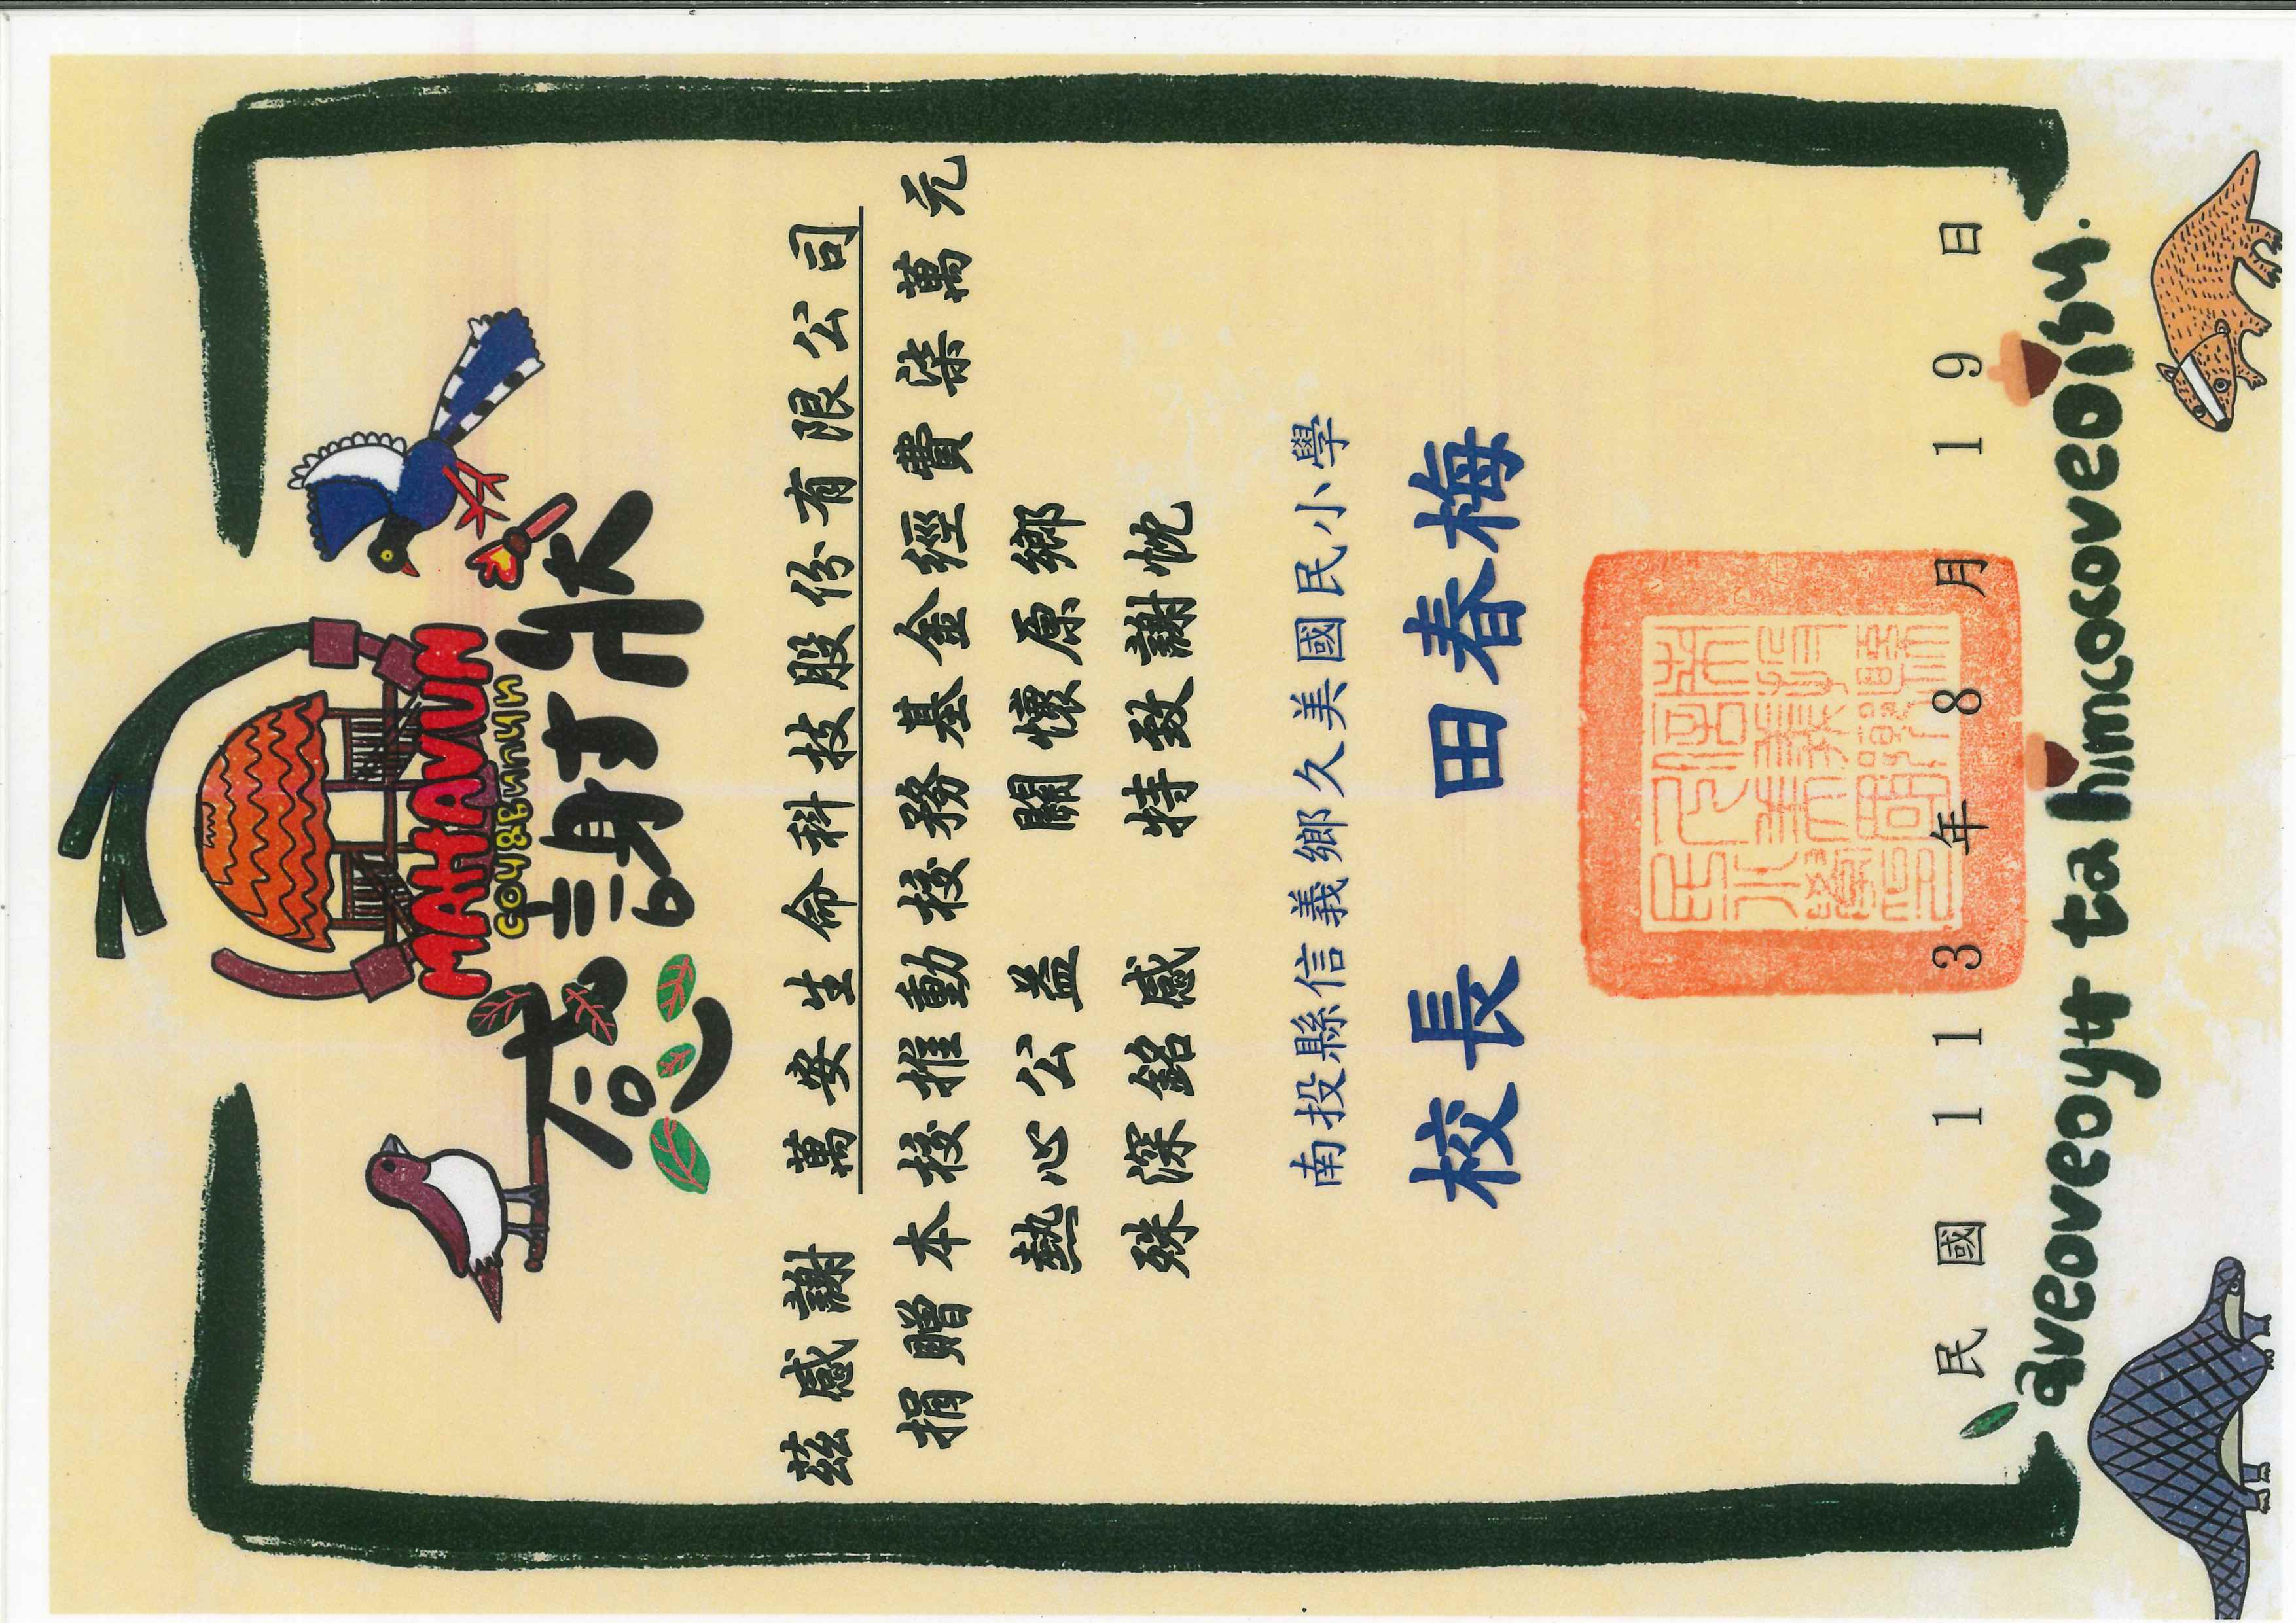 MAHAVUN
感謝狀
茲感謝 萬安生命科技股份有限公司
捐贈本校推動校務基金經費柒萬元
熱心公益 關懷原鄉
殊深銘感 特致謝忱
南投縣信義鄉久美國民小學
校長 田春梅
民國113年8月19日
aveoveoyu ta himcocoveoisy.